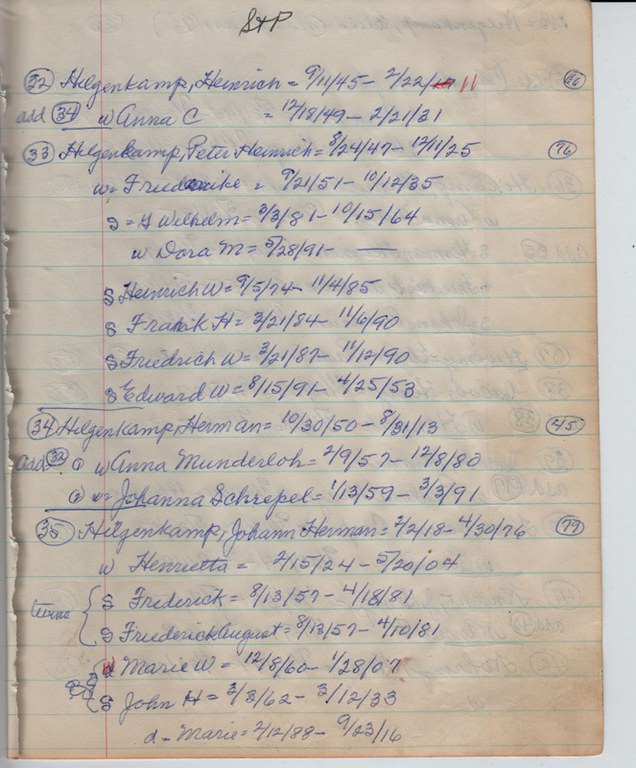 S+P
(32) Hilgenkamp, Heinrich = 9/11/45 - 2/22/11 (76)
add (34) w Anna C = 12/18/49 - 2/21/31
(33) Hilgenkamp, Peter Heinrich = 8/24/47 - 12/11/25 (76)
w = = 9/21/51 - 10/12/35
S = G Wilhelm = 3/3/81 - 10/15/64
w Dora M = 5/28/91 - —
S Heinrich W = 9/5/74 - 11/4/85
S Frank H = 3/21/84 - 11/6/90
S Friedrich W = 3/21/87 - 11/12/90
S Edward W = 8/15/91 - 4/25/53
(34) Hilgenkamp, Herman = 10/30/50 - 8/31/13 (45)
add (32) (1) w Anna Munderloh = 2/9/57 - 12/8/80
(2) w = Johanna Schrepel = 1/13/59 - 3/3/91
(35) Hilgenkamp, Johann Herman = 2/2/18 - 4/30/76 (79)
w Henrietta = 2/15/24 - 5/20/04
twins S Frederick = 8/13/57 - 4/18/81
S Frederick August = 8/13/57 - 4/10/81
d Marie W = 12/8/60 - 1/28/07
S John H = 3/8/62 - 3/12/33
d - Marie = 2/12/88 - 9/23/16